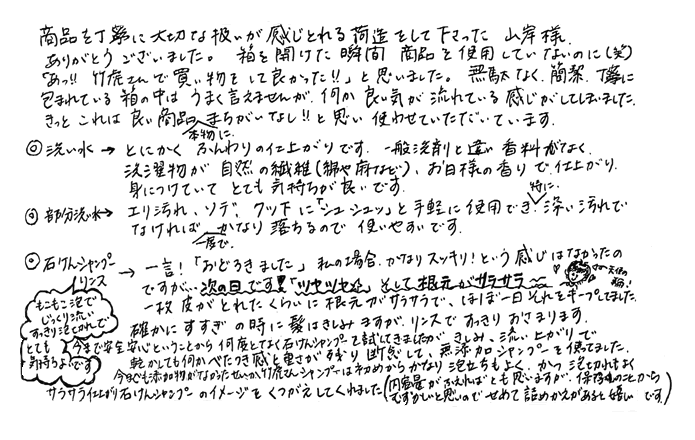 商品を丁寧に大切な扱いが感じとれる荷造をして下さった 山岸様
ありがとうございました。 箱を開けた瞬間 商品を使用していないのに(笑)
「あっ!! 竹虎さんで買い物をして良かった!!」と思いました。 無駄なく、簡潔、丁寧に
包まれている箱の中は うまく言えませんが、何か良い気が流れている感じがしてしまいました。
きっと これは良い商品 まちがいなし!! と思い 使わせていただいています。
本物に。
◎ 洗い水 → とにかく ふんわりの仕上がりです。一般洗剤と違い 香料がなく、
洗濯物が 自然の繊維(綿や麻など)、お日様の香りで仕上がり、
身につけていて とても 気持ちが良いです。
特に、
◎ 部分洗い水→ エリ汚れ、ソデ、クツ下に「シュ・シュッ」と手軽に使用でき、 汚れで
なければ かなり落ちるので 使いやすいです。
一度で、
◎ 石けんシャンプー リンス → 一言!「おどろきました」 私の場合、かなりスッキリ!という感じはなかったの
ですが…次の日です!「ツヤッツヤ☆」 そして 根元がサラサラ~~ 天使の輪!
一枚 皮がとれたくらいに 根元がサラサラで、ほぼ一日それをキープしてました。
もこもこ泡で
じっくり洗い
すっきり泡とれで
とても
気持ちよいです
確かに すすぎの時に 髪はきしみますが、リンスで すっきり おさまります。
今まで安全・安心ということから 何度となく石けんシャンプーを試してきましたが きしみ、洗い上がりで
乾かしても何かべたつき感と重さが残り 断念して、無添加シャンプーを使ってました。
今までも添加物がなかったせいか 竹虎さんシャンプーは初めからかなり泡立ちもよく、かつ 泡切れもよく
サラサラ仕上がり 石けんシャンプーのイメージをくつがえしてくれました(内容量がふえればとも思いますが、保存 のことから
むずかしいと思いので せめて 詰めかえがあると嬉しいです。)